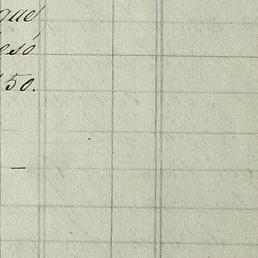 que
esó
50.
–